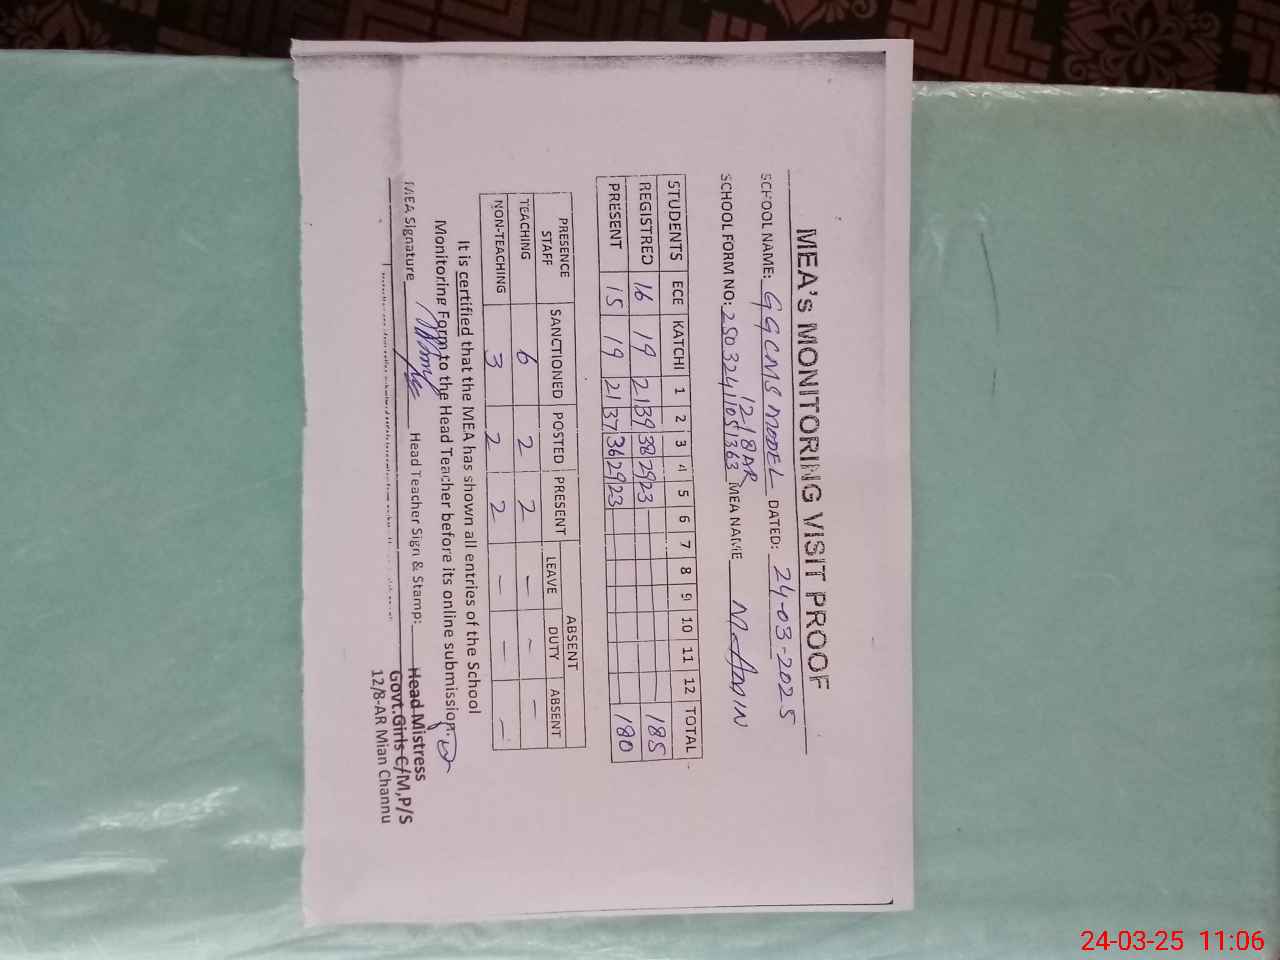 MEA's MONITORING VISIT PROOF
SCHOOL NAME: GGCMS MODEL DATED: 24-03-2025
12/8AR
SCHOOL FORM NO: MEA NAME M-AMIN
STUDENTS ECE KATCHI 1 2 3 4 5 6 7 8 9 10 11 12 TOTAL
REGISTRED 16 19 21 39 38 29 23 185
PRESENT 15 19 21 37 36 29 23 180
PRESENCE STAFF SANCTIONED POSTED PRESENT ABSENT
LEAVE DUTY ABSENT
TEACHING 6 2 2 – – –
NON-TEACHING 3 2 2 – – –
It is certified that the MEA has shown all entries of the School
Monitoring Form to the Head Teacher before its online submission.
MEA Signature Head Teacher Sign & Stamp:
Head Mistress
Govt.Girls C/M,P/S
12/8-AR Mian Channu
24-03-25 11:06